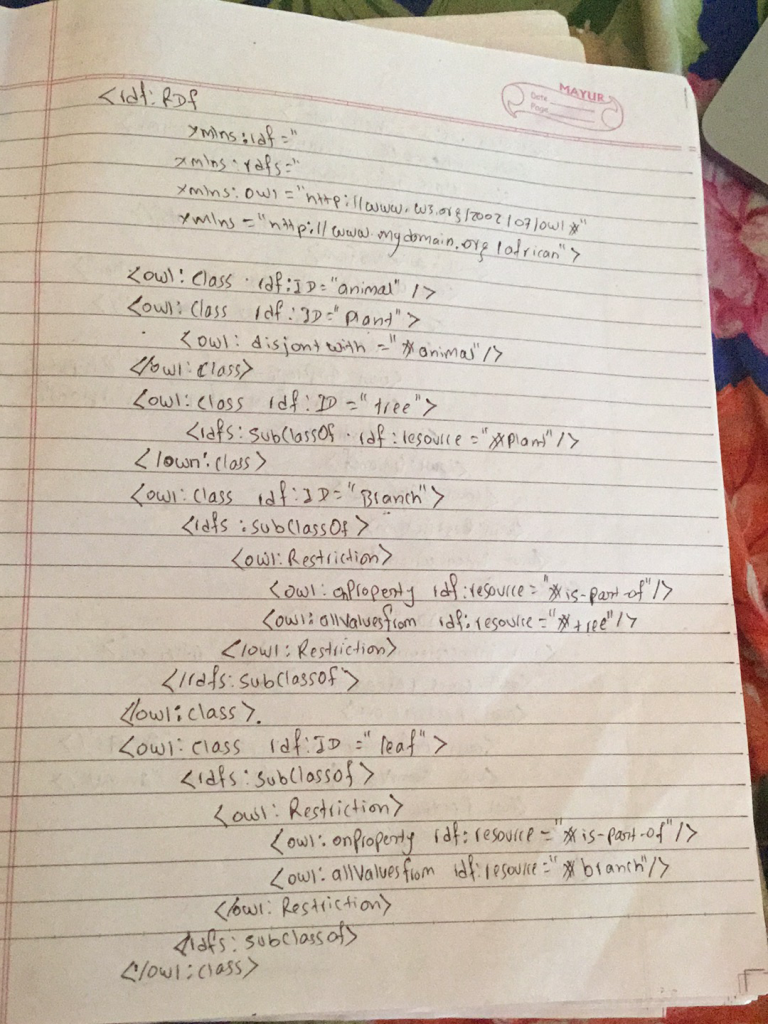 <rdf: RDF
MAYUR
Date
Page
xmlns:rdf ="
xmlns:rdfs="
xmlns: owl = "http://www.w3.org/2002/07/owl #"
xmlns ="http://www.mydomain.org/african">
<owl: Class rdf:ID="animal" />
<owl: Class rdf:ID="Plant">
<owl: disjont with ="#animal"/>
</owl: Class>
<owl: class rdf:ID ="tree">
<rdfs: SubClassOf rdf: resource ="#Plant"/>
</own: class>
<owl: class rdf:ID="Branch">
<rdfs : subClassOf >
<owl: Restriction>
<owl: onProperty rdf:resource="#is-part-of"/>
<owl: allValuesfrom rdf:resource="#tree"/>
</owl: Restriction>
</rdfs: SubClassof>
</owl: class>.
<owl: class rdf:ID =" leaf" >
<rdfs: SubClassof>
<owl: Restriction>
<owl: onProperty rdf: resource ="#is-part-of"/>
<owl: allValuesfrom rdf:resource="#branch"/>
</owl: Restriction>
</rdfs: subclassof>
</owl: class>